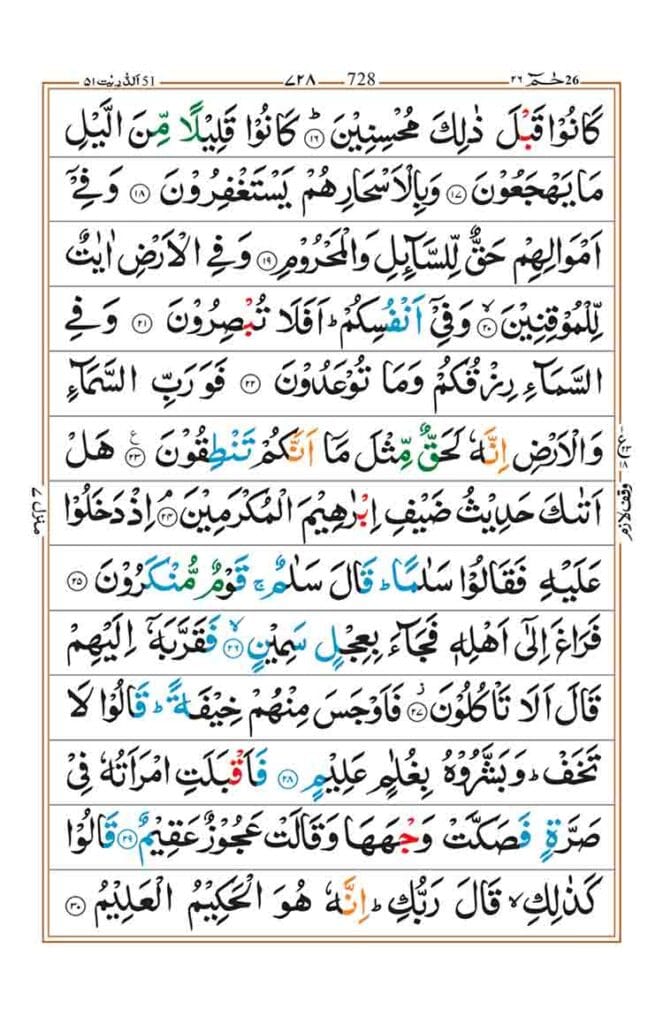 الذّٰریٰت ٥١ 51 ٧٢٨ 728 حٰمٓ ٢٦ 26
كَانُوْا قَبْلَ ذٰلِكَ مُحْسِنِيْنَ ؕ ﴿۱۶﴾ كَانُوْا قَلِيْلًا مِّنَ الَّيْلِ
مَا يَهْجَعُوْنَ ﴿۱۷﴾ وَبِالْاَسْحَارِ هُمْ يَسْتَغْفِرُوْنَ ﴿۱۸﴾ وَفِيْۤ
اَمْوَالِهِمْ حَقٌّ لِّلسَّآئِلِ وَالْمَحْرُوْمِ ﴿۱۹﴾ وَفِي الْاَرْضِ اٰيٰتٌ
لِّلْمُوْقِنِيْنَ ۙ ﴿۲۰﴾ وَفِيْۤ اَنْفُسِكُمْ ؕ اَفَلَا تُبْصِرُوْنَ ﴿۲۱﴾ وَفِي
السَّمَآءِ رِزْقُكُمْ وَمَا تُوْعَدُوْنَ ﴿۲۲﴾ فَوَرَبِّ السَّمَآءِ
وَالْاَرْضِ اِنَّهٗ لَحَقٌّ مِّثْلَ مَاۤ اَنَّكُمْ تَنْطِقُوْنَ ﴿۲۳﴾ هَلْ
اَتٰىكَ حَدِيْثُ ضَيْفِ اِبْرٰهِيْمَ الْمُكْرَمِيْنَ ۘ ﴿۲۴﴾ اِذْ دَخَلُوْا
عَلَيْهِ فَقَالُوْا سَلٰمًا ؕ قَالَ سَلٰمٌ ۚ قَوْمٌ مُّنْكَرُوْنَ ﴿۲۵﴾
فَرَاغَ اِلٰۤى اَهْلِهٖ فَجَآءَ بِعِجْلٍ سَمِيْنٍ ۙ ﴿۲۶﴾ فَقَرَّبَهٗۤ اِلَيْهِمْ
قَالَ اَلَا تَاْكُلُوْنَ ؗ ﴿۲۷﴾ فَاَوْجَسَ مِنْهُمْ خِيْفَةً ؕ قَالُوْا لَا
تَخَفْ ؕ وَبَشَّرُوْهُ بِغُلٰمٍ عَلِيْمٍ ﴿۲۸﴾ فَاَقْبَلَتِ امْرَاَتُهٗ فِيْ
صَرَّةٍ فَصَكَّتْ وَجْهَهَا وَقَالَتْ عَجُوْزٌ عَقِيْمٌ ﴿۲۹﴾ قَالُوْا
كَذٰلِكِ ۙ قَالَ رَبُّكِ ؕ اِنَّهٗ هُوَ الْحَكِيْمُ الْعَلِيْمُ ﴿۳۰﴾
وقف لازم
منزل ٧